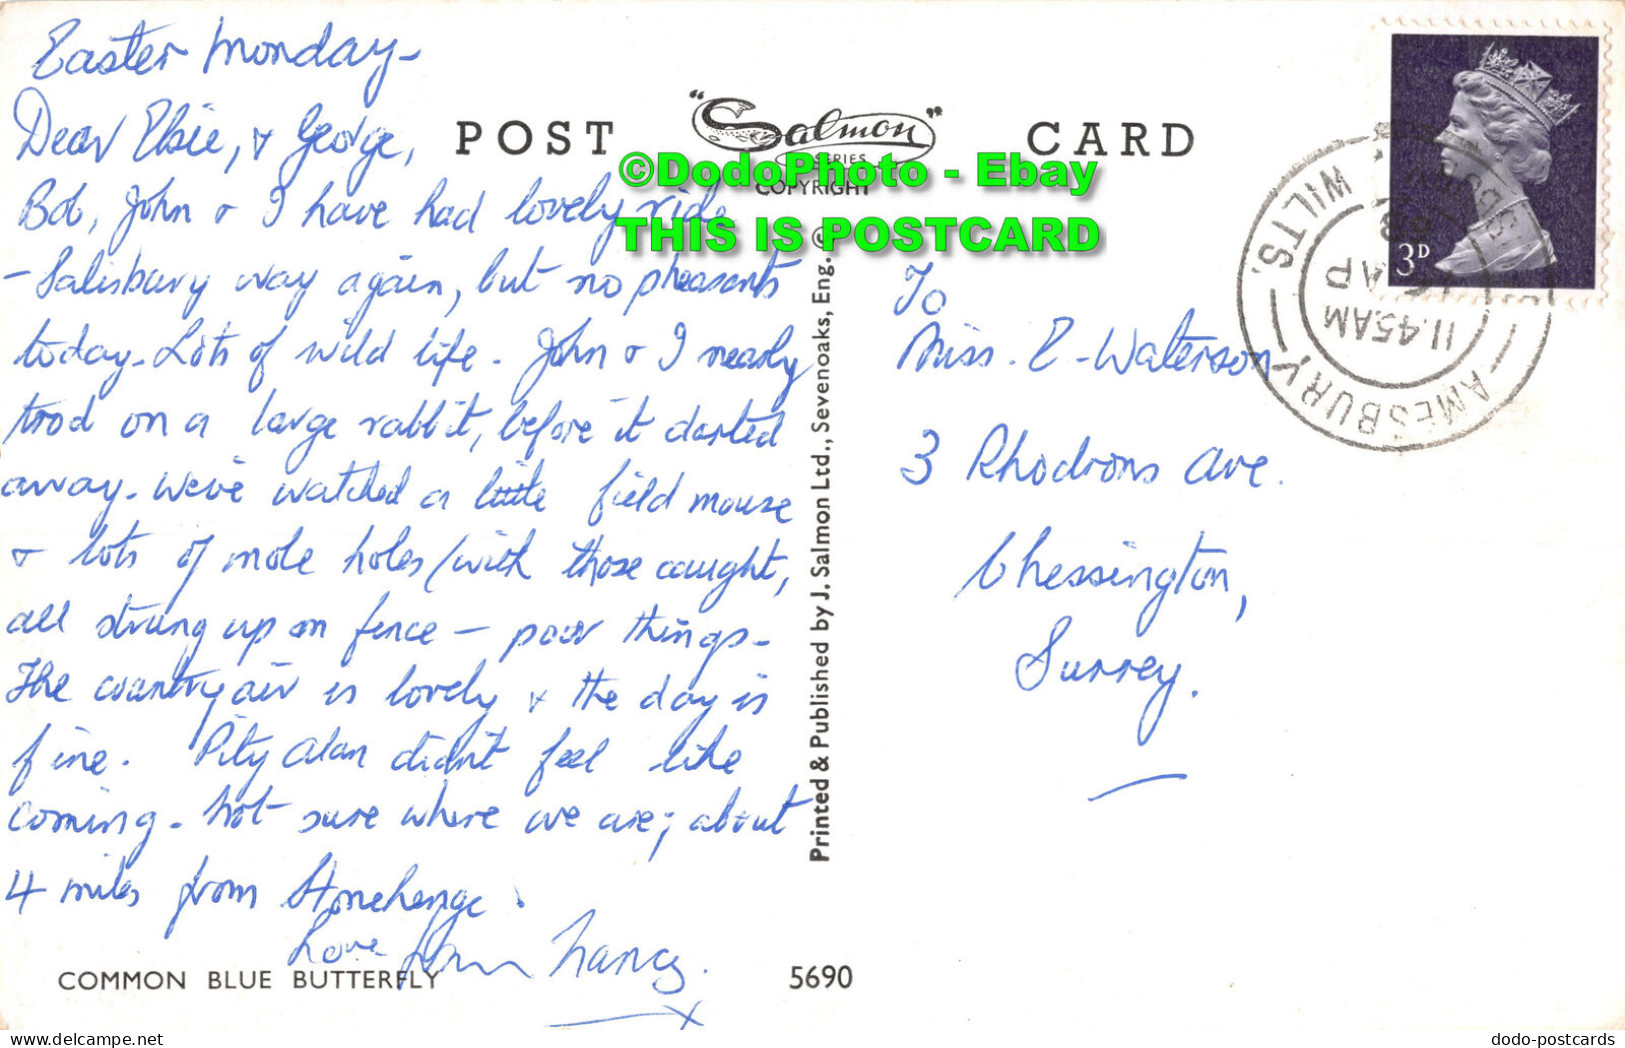 Easter Monday -
Dear Elsie, & George,
Bob, John & I have had lovely ride
- Salisbury way again, but no pheasants
today. Lots of wild life. John & I nearly
trod on a large rabbit, before it darted
away. We've watched a little field mouse
& lots of mole holes (with those caught,
all strung up on fence - poor things.
The country air is lovely & the day is
fine. Pity Alan didn't feel like
coming. Not sure where we are; about
4 miles from Stonehenge.
Love from Nancy.
x
COMMON BLUE BUTTERFLY
5690
POST CARD
"Salmon"
SERIES
COPYRIGHT
©DodoPhoto - Ebay
THIS IS POSTCARD
Printed & Published by J. Salmon Ltd., Sevenoaks, Eng. ©
To
Miss. E. Waterson
3 Rhodrons Ave.
Chessington,
Surrey.
3D
AMESBURY
WILTS.
11.45AM
AP
68
delcampe.net
dodo-postcards